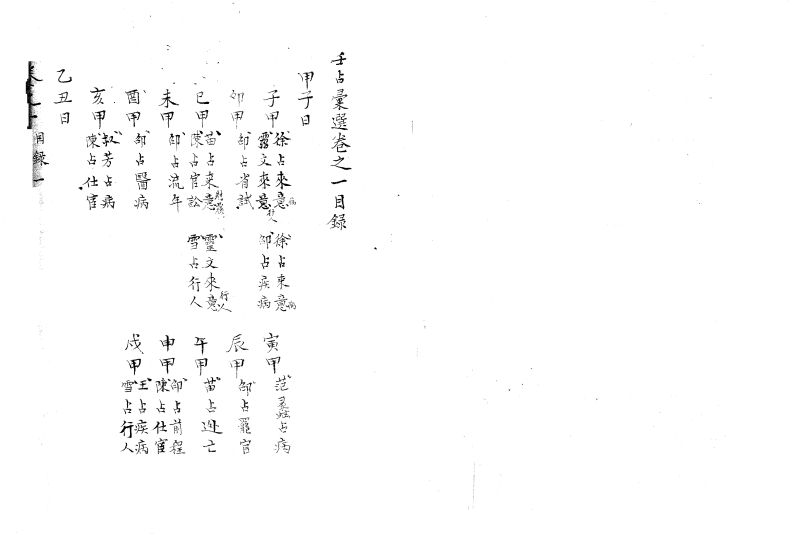 壬占彙選卷之一目錄
甲子日
子甲
徐占來意 病
靈文來意 財人
徐占來意 病
邵占疾病
寅甲
范蠡占病
卯甲
邵占省試
辰甲
邵占罷官
巳甲
苗占來意
陳占官訟
靈文來意 行人
雪占行人
午甲
苗占逃亡
未甲
邵占流年
申甲
邵占前程
陳占仕宦
酉甲
邵占醫病
戌甲
王占疾病
雪占行人
亥甲
叔芳占病
陳占仕宦
乙丑日
目錄 一